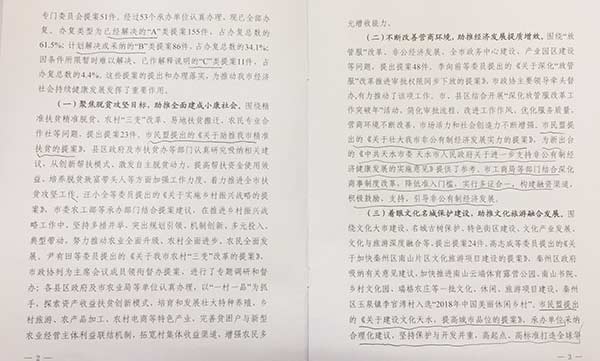 专门委员会提案51件，经过53个承办单位认真办理，现已全部办
复。办复类型为已经解决的“A”类提案155件，占办复总数的
61.5%；计划解决或采纳的“B”类提案86件，占办复总数的34.1%；
因条件所限暂时难以解决、已作解释说明的“C”类提案11件，占
办复总数的4.4%。这些提案的提出和办理落实，为推动我市经济
社会持续健康发展发挥了重要作用。
（一）聚焦脱贫攻坚目标，助推全面建成小康社会。围绕
精准扶贫精准脱贫、农村“三变”改革、易地扶贫搬迁、农民专业合
作社等问题，提出提案23件。市民盟提出的《关于助推我市精准
扶贫的提案》，县区政府及市扶贫办等部门认真研究殁的相关建
议，从创新帮扶模式、激发自主脱贫动力、提高帮扶资金使用效
益、培养脱贫致富带头人等方面加强工作力度，着力推进全市扶
贫攻坚工作。汪小全等委员提出的《关于实施乡村振兴战略的提
案》，市委农工部等承办部门结合提案建议，在推进乡村振兴战
略工作中，坚持多措并举，突出规划引领、机制创新、多元投入、
典型带动，努力推动农业全面升级、农村全面进步、农民全面发
展。尹有田等委员提出的《关于我市农村“三变”改革的提案》，
市政协列为主席会议成员领衔督办提案，进行了专题调研和督
办；各县区政府及市农业局等单位认真办理，以“一村一品”为抓
手，探索资产收益扶贫创新模式，培育和发展壮大特种养殖、乡
村旅游、农产品加工、农村电商等特色产业，完善贫困户与新型
农业经营主体利益联结机制，拓宽村集体收益渠道，增强农民多
— 2 —
元增收能力。
（二）不断改善营商环境，助推经济发展提质增效。围绕“放
管服”改革、非公经济发展、全市政务中心建设、产业园区建设
等问题，提出提案48件。李向前等委员提出的《关于深化“放管
服”改革推进审批权限同乡下放的提案》，市政协主要领导牵头督
办，有力推动了该项工作。市、县区结合开展“深化放管服改革工
作突破年”活动，简化审批流程，改进工作作风，优化服务质量，
营商环境不断改善，市场活力和社会创造力不断增强。市民盟提
出的《关于壮大我市非公有制经济发展实力的提案》，为新出台
的《中共天水市委 天水市人民政府关于进一步支持非公有制经
济健康发展的实施意见》提供了参考。市工商局等部门结合深化
商事制度改革，降低准入门槛，实行多证合一，构建融资渠道，
积极鼓励、支持、引导非公有制经济发展。
（三）着眼文化名城保护建设，助推文化旅游融合发展。围
绕文化大市建设、名城古树保护、特色街区建设、文化产业发展、
文化与旅游深度融合等，提出提案24件。高志成等委员提出的《关
于加快秦州区南山片文化旅游项目建设的提案》，秦州区政府
吸纳有关意见建议，加快推进南山云端体育露营公园、南山书院、
乡村文化园、瑞格农庄等一批文化、休闲、旅游项目建设，秦州
区玉泉镇李官湾村入选“2018年中国美丽休闲乡村”。市民盟提出
的《关于建设文化天水，提高城市品位的提案》，承办单位采纳
合理化的建议，坚持保护与开发并重，高起点、高标准打造全球华
— 3 —